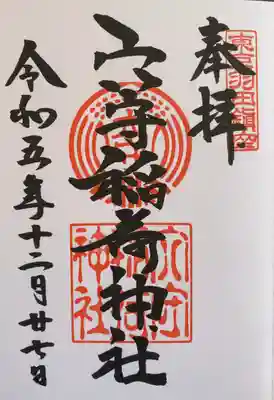 東京羽田鎮座
奉拝
穴守稲荷神社
穴守稲荷神社
令和五年十二月廿七日